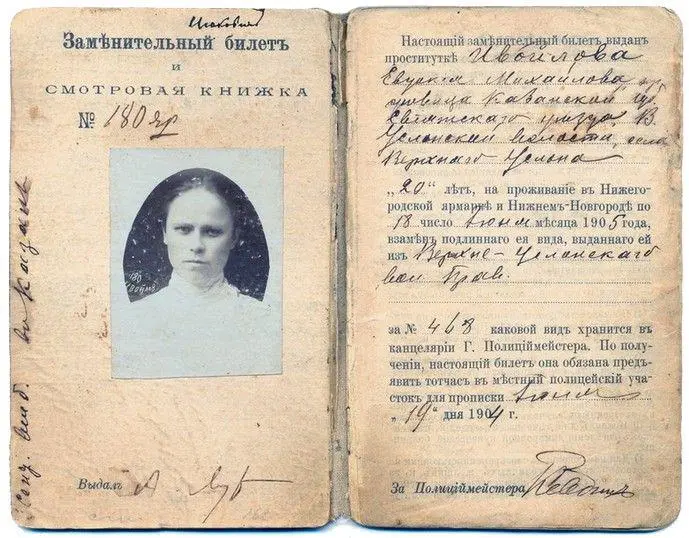 Замѣнительный билетъ
и
СМОТРОВАЯ КНИЖКА
№ 180 яр
180
Выдалъ
въ Казань
Настоящій замѣнительный билетъ выданъ
проституткѣ Ивойлова
Евдокія Михайлова, кр
Казанской губ.
Свіяжскаго уѣзда, В.
Услонской волости, села
Верхняго Услона
„20“ лѣтъ, на проживаніе въ Нижего-
родской ярмаркѣ и Нижнемъ-Новгородѣ по
18 число іюня мѣсяца 1905 года,
взамѣнъ подлиннаго ея вида, выданнаго ей
изъ Верхне-Услонскаго
вол. Прав.
за № 468 каковой видъ хранится въ
канцеляріи Г. Полиціймейстера. По полу-
ченіи, настоящій билетъ она обязана предъ-
явить тотчасъ въ мѣстный полицейскій уча-
стокъ для прописки іюня
„19“ дня 1904 г.
За Полиціймейстера